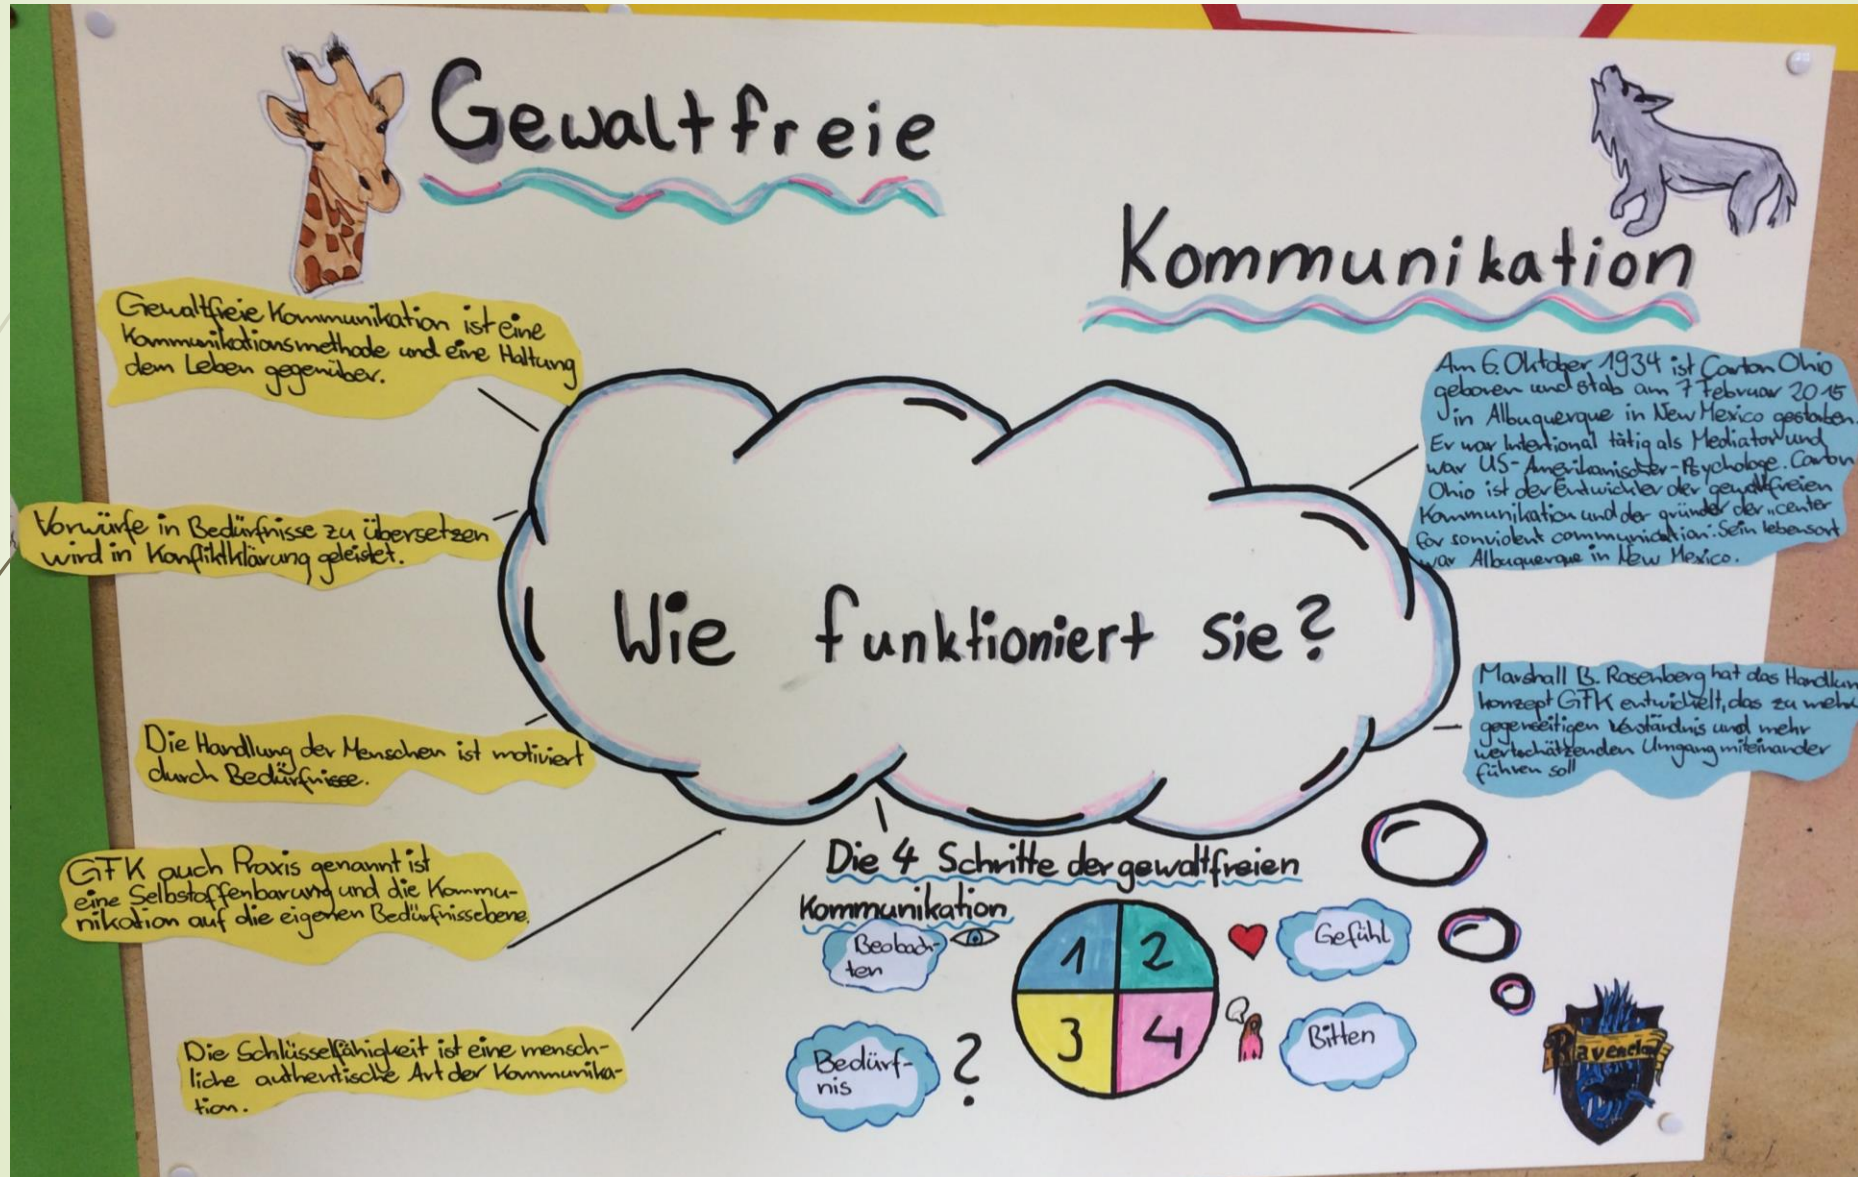 Gewaltfreie
Kommunikation
Gewaltfreie Kommunikation ist eine
Kommunikationsmethode und eine Haltung
dem Leben gegenüber.
Vorwürfe in Bedürfnisse zu übersetzen
wird in Konfliktklärung geleistet.
Die Handlung der Menschen ist motiviert
durch Bedürfnisse.
GFK auch Praxis genannt ist
eine Selbstoffenbarung und die Kommu-
nikation auf die eigenen Bedürfnissebene.
Die Schlüsselfähigkeit ist eine mensch-
liche authentische Art der Kommunika-
tion.
Wie funktioniert sie?
Am 6. Oktober 1934 ist Canton Ohio
geboren und stab am 7 Februar 2015
in Albuquerque in New Mexico gestorben.
Er war Intentional tätig als Mediator und
war US-Amerikanischer-Psychologe. Canton
Ohio ist der Entwickler der gewaltfreien
Kommunikation und der gründer der „center
for sonviolent communication. Sein lebensort
war Albuquerque in New Mexico.
Marshall B. Rosenberg hat das Handlun
konzept GFK entwickelt, das zu mehr
gegenseitigen Verständnis und mehr
wertschätzenden Umgang miteinander
führen soll
Die 4 Schritte der gewaltfreien
Kommunikation
Beobach-
ten
1 2
Gefühl
Bedürf-
nis
?
3 4
Bitten
Ravenclaw